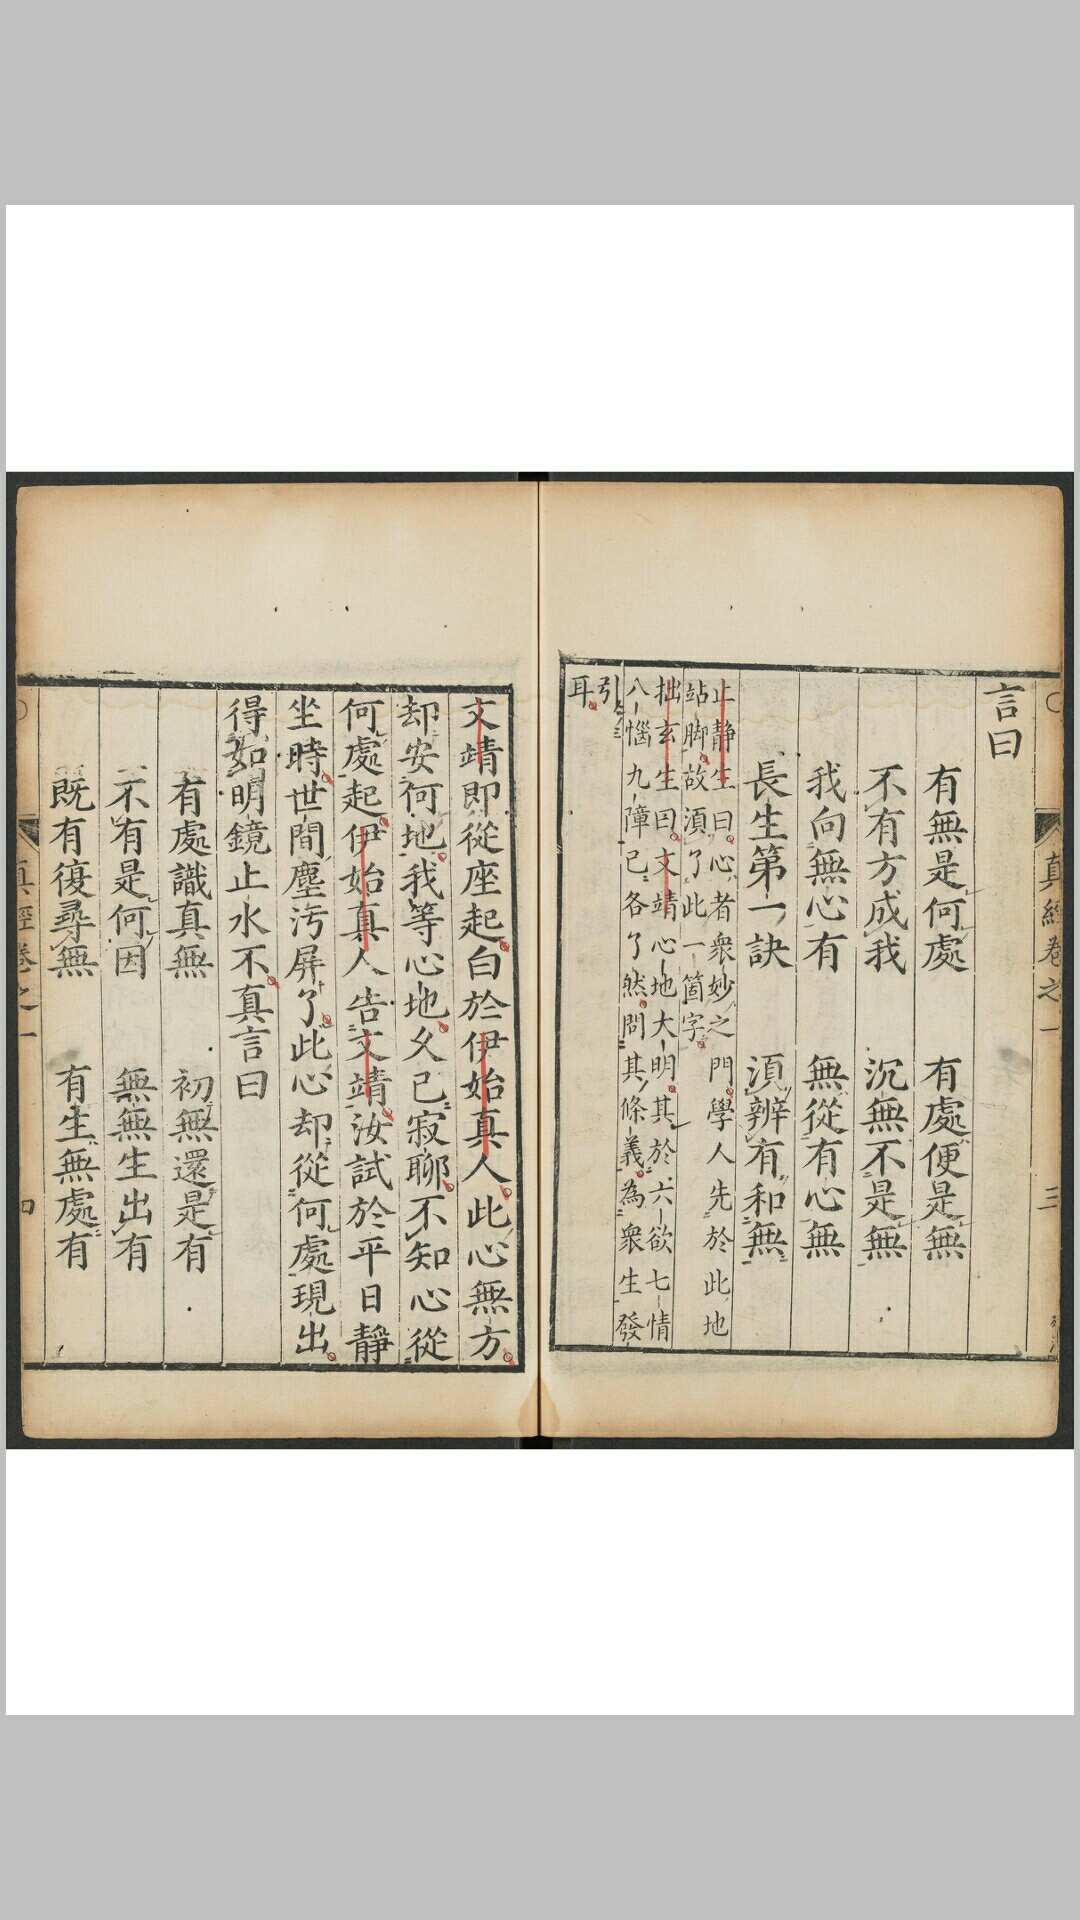 言曰
有無是何處　有處便是無
不有方成我　沉無不是無
我向無心有　無從有心無
長生第一訣　湏辨有和無
止静生曰心者衆妙之門學人先於此地
站脚故湏了此一箇字
拙玄生曰文靖心地大明其於六欲七情
八惱九障已各了然問其條義為衆生發
引
耳
真經卷之一　三
文靖即從座起白於伊始真人此心無方
却安何地我等心地久已寂聊不知心從
何處起伊始真人告文靖汝試於平日靜
坐時世間塵污屏了此心却從何處現出
得如明鏡止水不真言曰
有處識真無　初無還是有
不有是何因　無無生出有
既有復尋無　有生無處有
真經卷之一　四